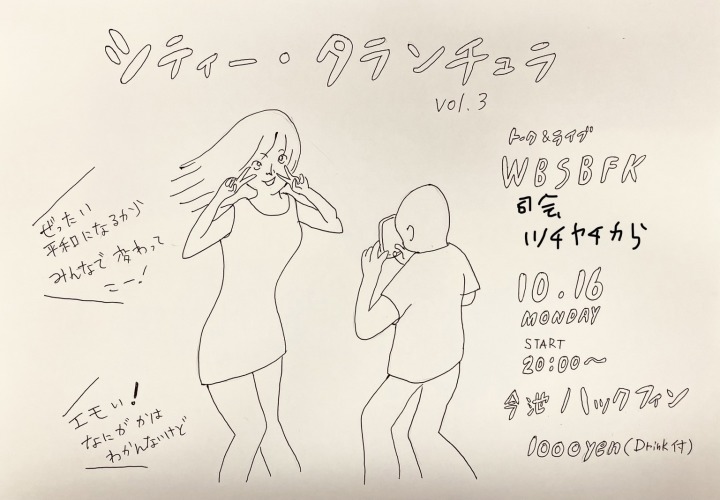 シティー・タランチュラ
vol.3
トーク&ライブ
WBSBFK
司会
ツチヤチカら
10.16
MONDAY
START
20:00〜
今池ハックフィン
1000yen(Drink付)
ぜったい
平和になるから
みんなで変わって
こー!
エモい!
なにがかは
わかんないけど